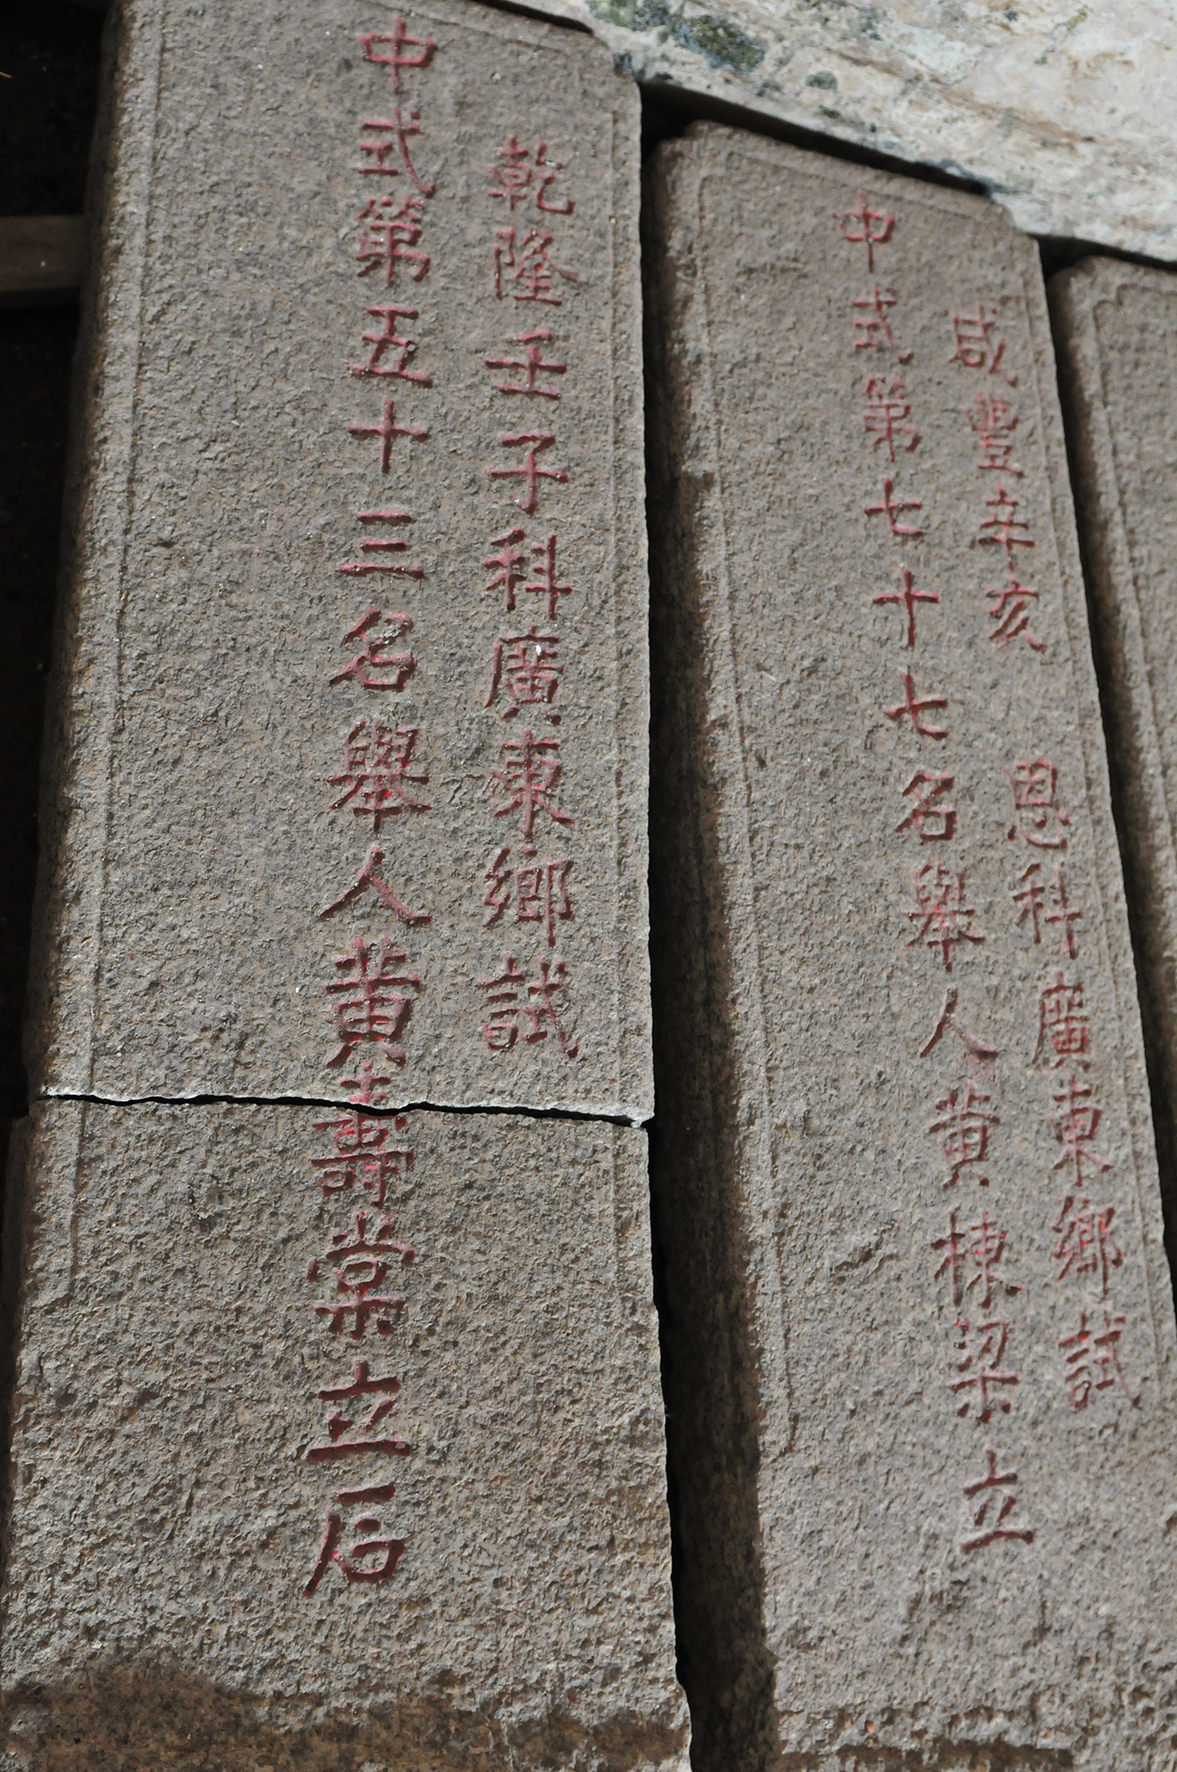 咸豐辛亥 恩科廣東鄉試
中式第七十七名舉人黃棟梁立
乾隆壬子科廣東鄉試
中式第五十三名舉人黃壽棠立石